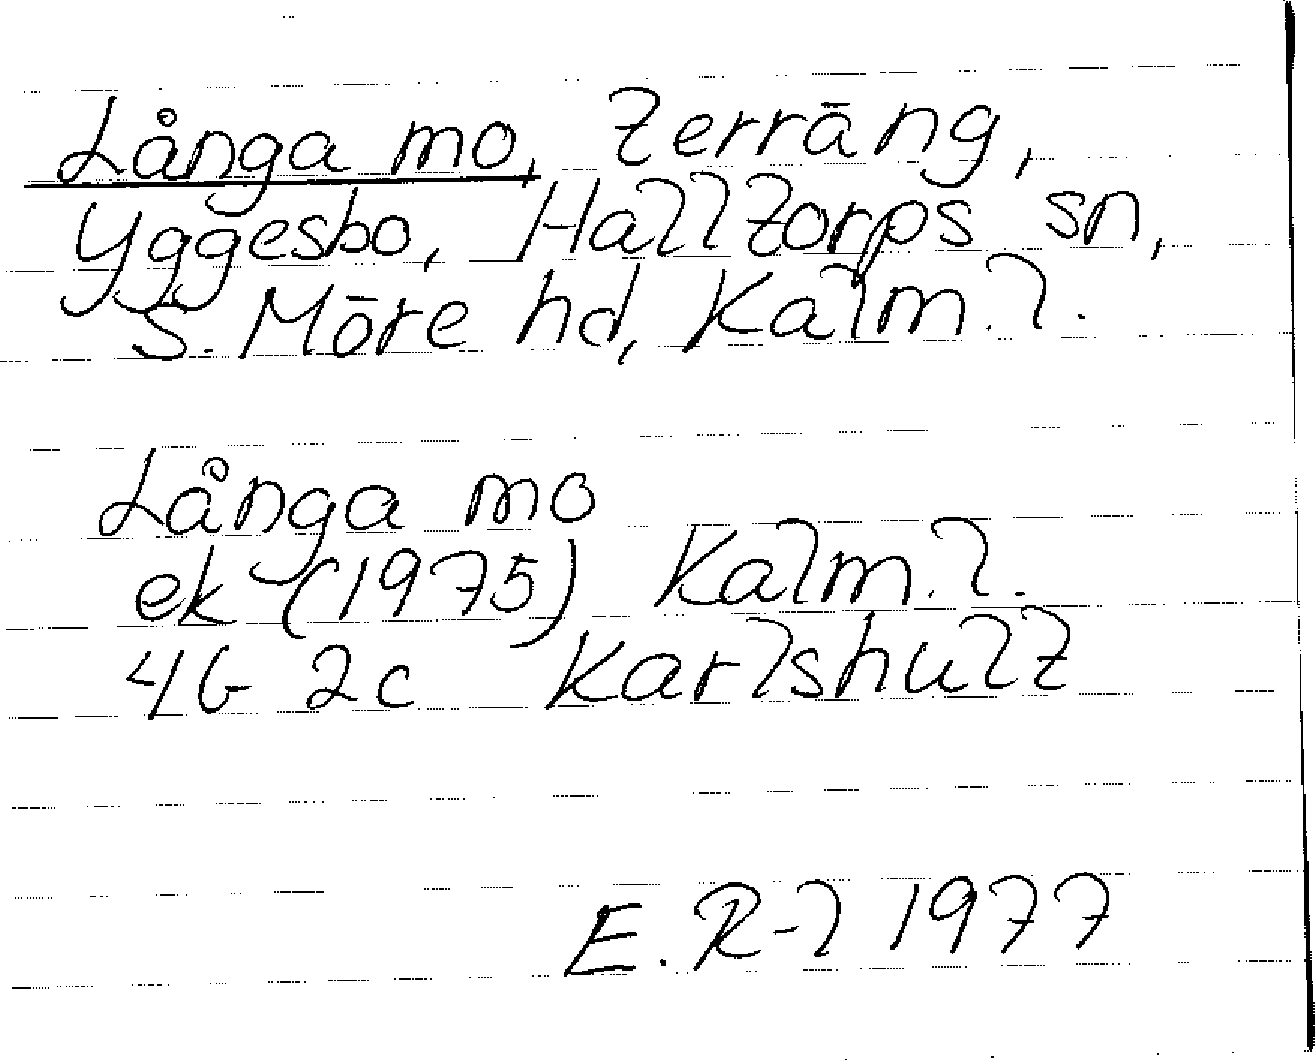 Långa mo, terräng,
Yggesbo, Halltorps sn,
S. Möre hd, Kalm. l.
Långa mo
ek (1975) Kalm. l.
4G 2c Karlshult
E. R-l 1977